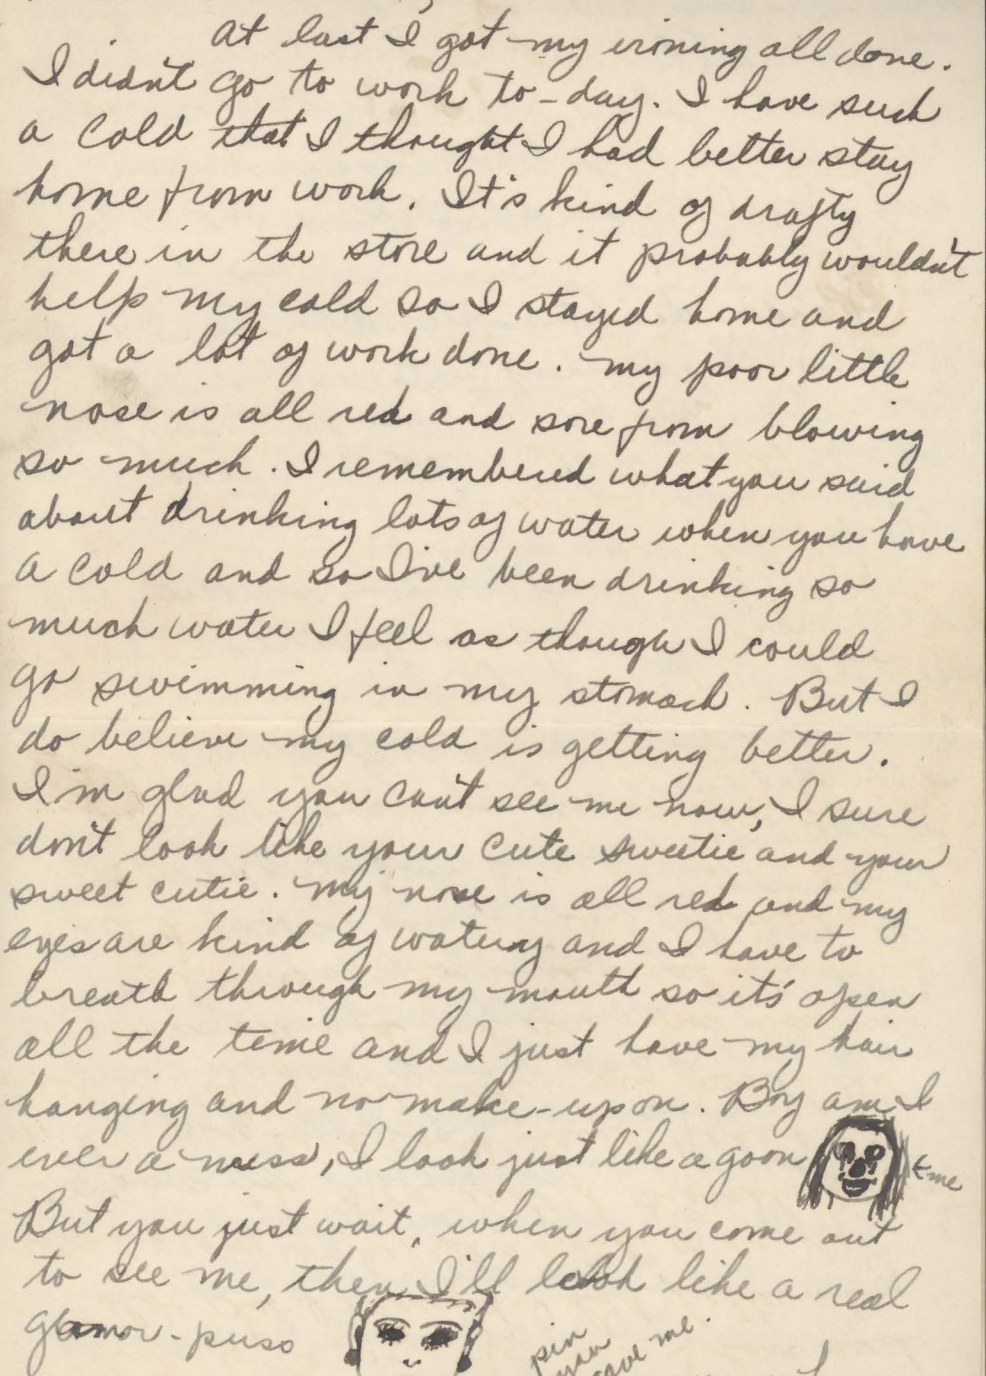 At last I got my ironing all done.
I didn't go to work to-day. I have such
a cold that I thought I had better stay
home from work. It's kind of drafty
there in the store and it probably wouldn't
help my cold so I stayed home and
got a lot of work done. My poor little
nose is all red and sore from blowing
so much. I remembered what you said
about drinking lots of water when you have
a cold and so I've been drinking so
much water I feel as though I could
go swimming in my stomach. But I
do believe my cold is getting better.
I'm glad you can't see me now, I sure
don't look like your cute sweetie and your
sweet cutie. My nose is all red and my
eyes are kind of watery and I have to
breath through my mouth so it's open
all the time and I just have my hair
hanging and no make-up on. Boy am I
ever a mess, I look just like a goon
me
But you just wait, when you come out
to see me, then I'll look like a real
glamor-puss
pin
you
gave me.